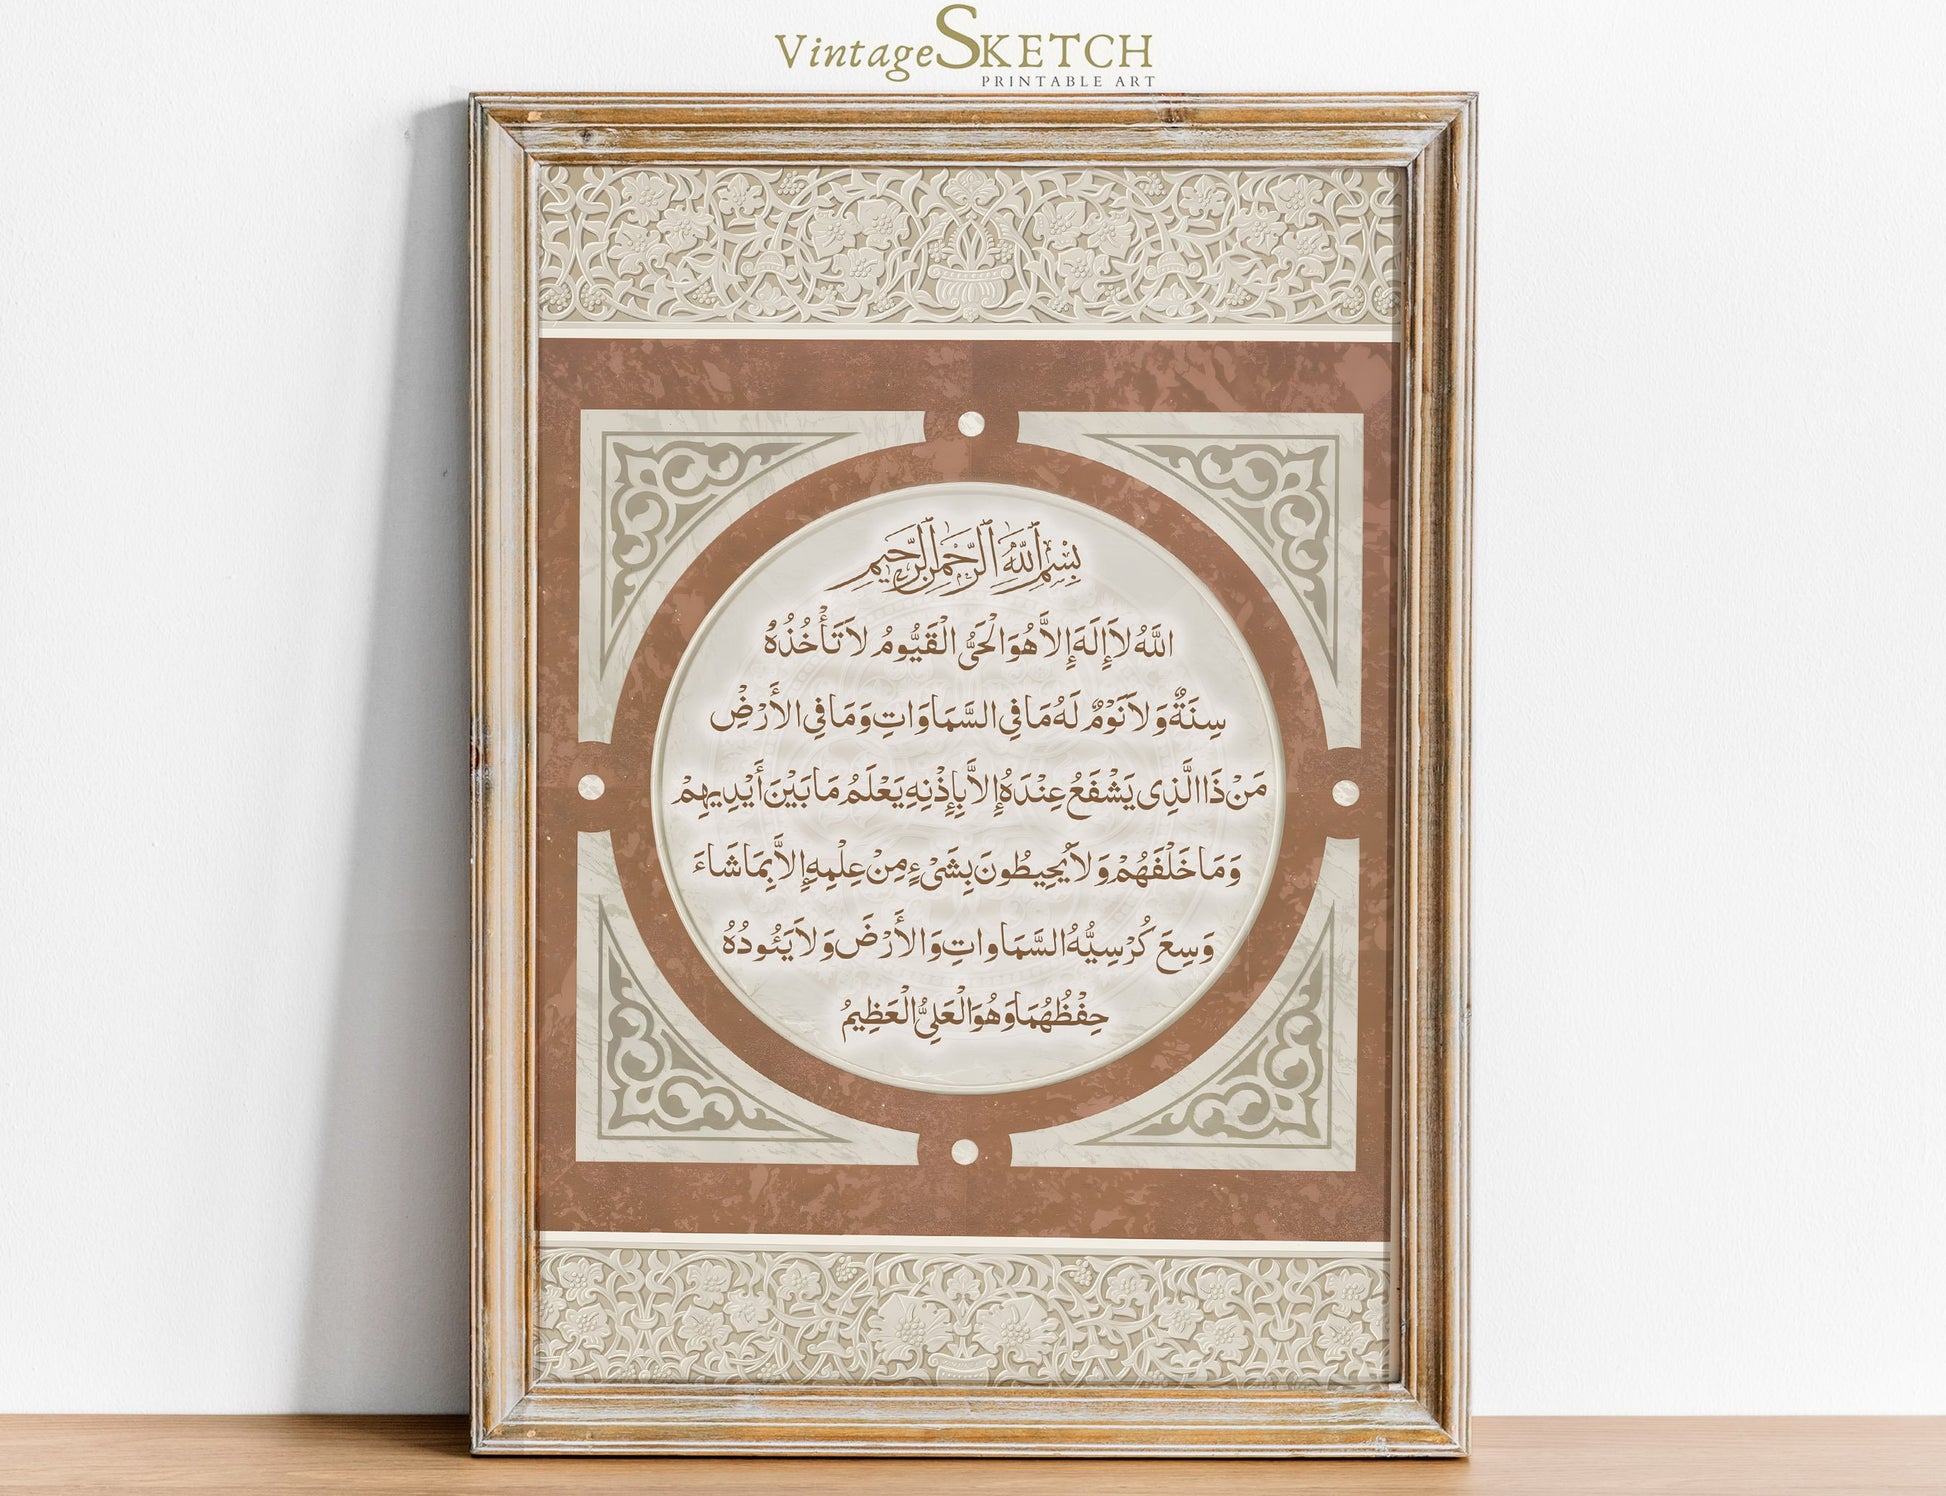 VintageSKETCH
PRINTABLE ART
بِسْمِ اللَّهِ الرَّحْمَنِ الرَّحِيمِ
اللَّهُ لاَ إِلَهَ إِلاَّ هُوَ الْحَيُّ الْقَيُّومُ لاَ تَأْخُذُهُ
سِنَةٌ وَلاَ نَوْمٌ لَهُ مَا فِي السَّمَاوَاتِ وَمَا فِي الأَرْضِ
مَنْ ذَا الَّذِي يَشْفَعُ عِنْدَهُ إِلاَّ بِإِذْنِهِ يَعْلَمُ مَا بَيْنَ أَيْدِيهِمْ
وَمَا خَلْفَهُمْ وَلاَ يُحِيطُونَ بِشَيْءٍ مِنْ عِلْمِهِ إِلاَّ بِمَا شَاءَ
وَسِعَ كُرْسِيُّهُ السَّمَاوَاتِ وَالأَرْضَ وَلاَ يَئُودُهُ
حِفْظُهُمَا وَهُوَ الْعَلِيُّ الْعَظِيمُ